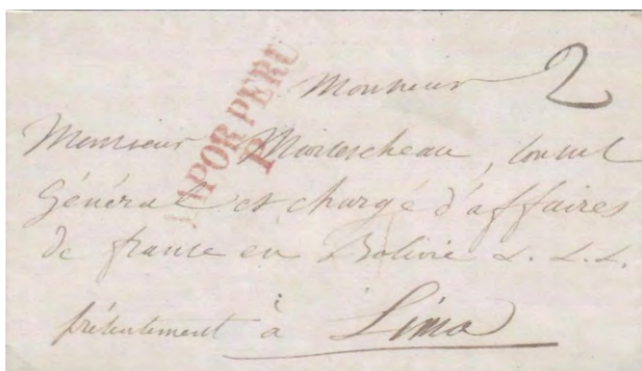 VAPOR PERU
P
Monsieur 2
Monsieur Marescheau, Consul
Général et chargé d'affaires
de france en Bolivie &. &. &.
présentement à Lima